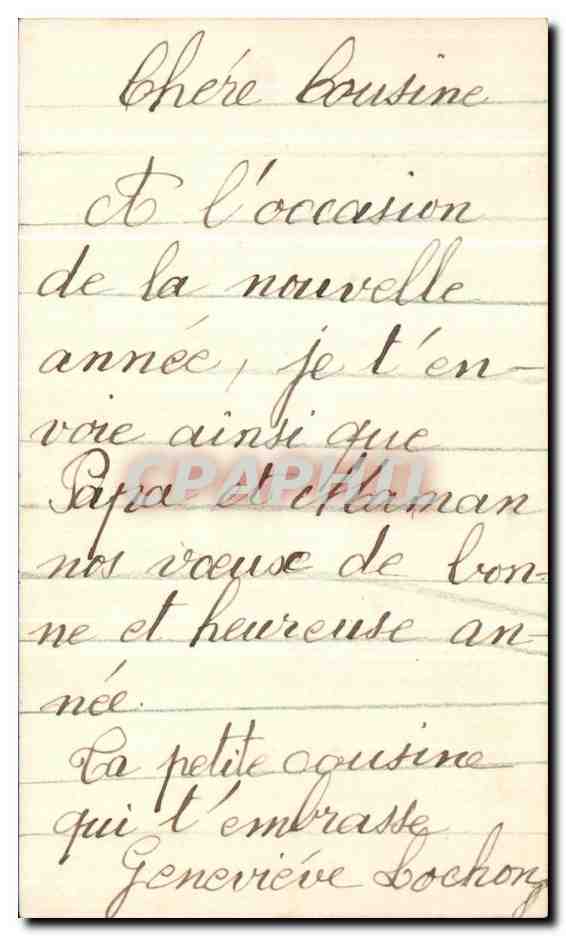 Chére Cousine
A l'occasion
de la nouvelle
année, je t'en-
voie ainsi que
Papa et Maman
nos vœux de bon-
ne et heureuse an-
née.
Ta petite cousine
qui t'embrasse
Geneviéve